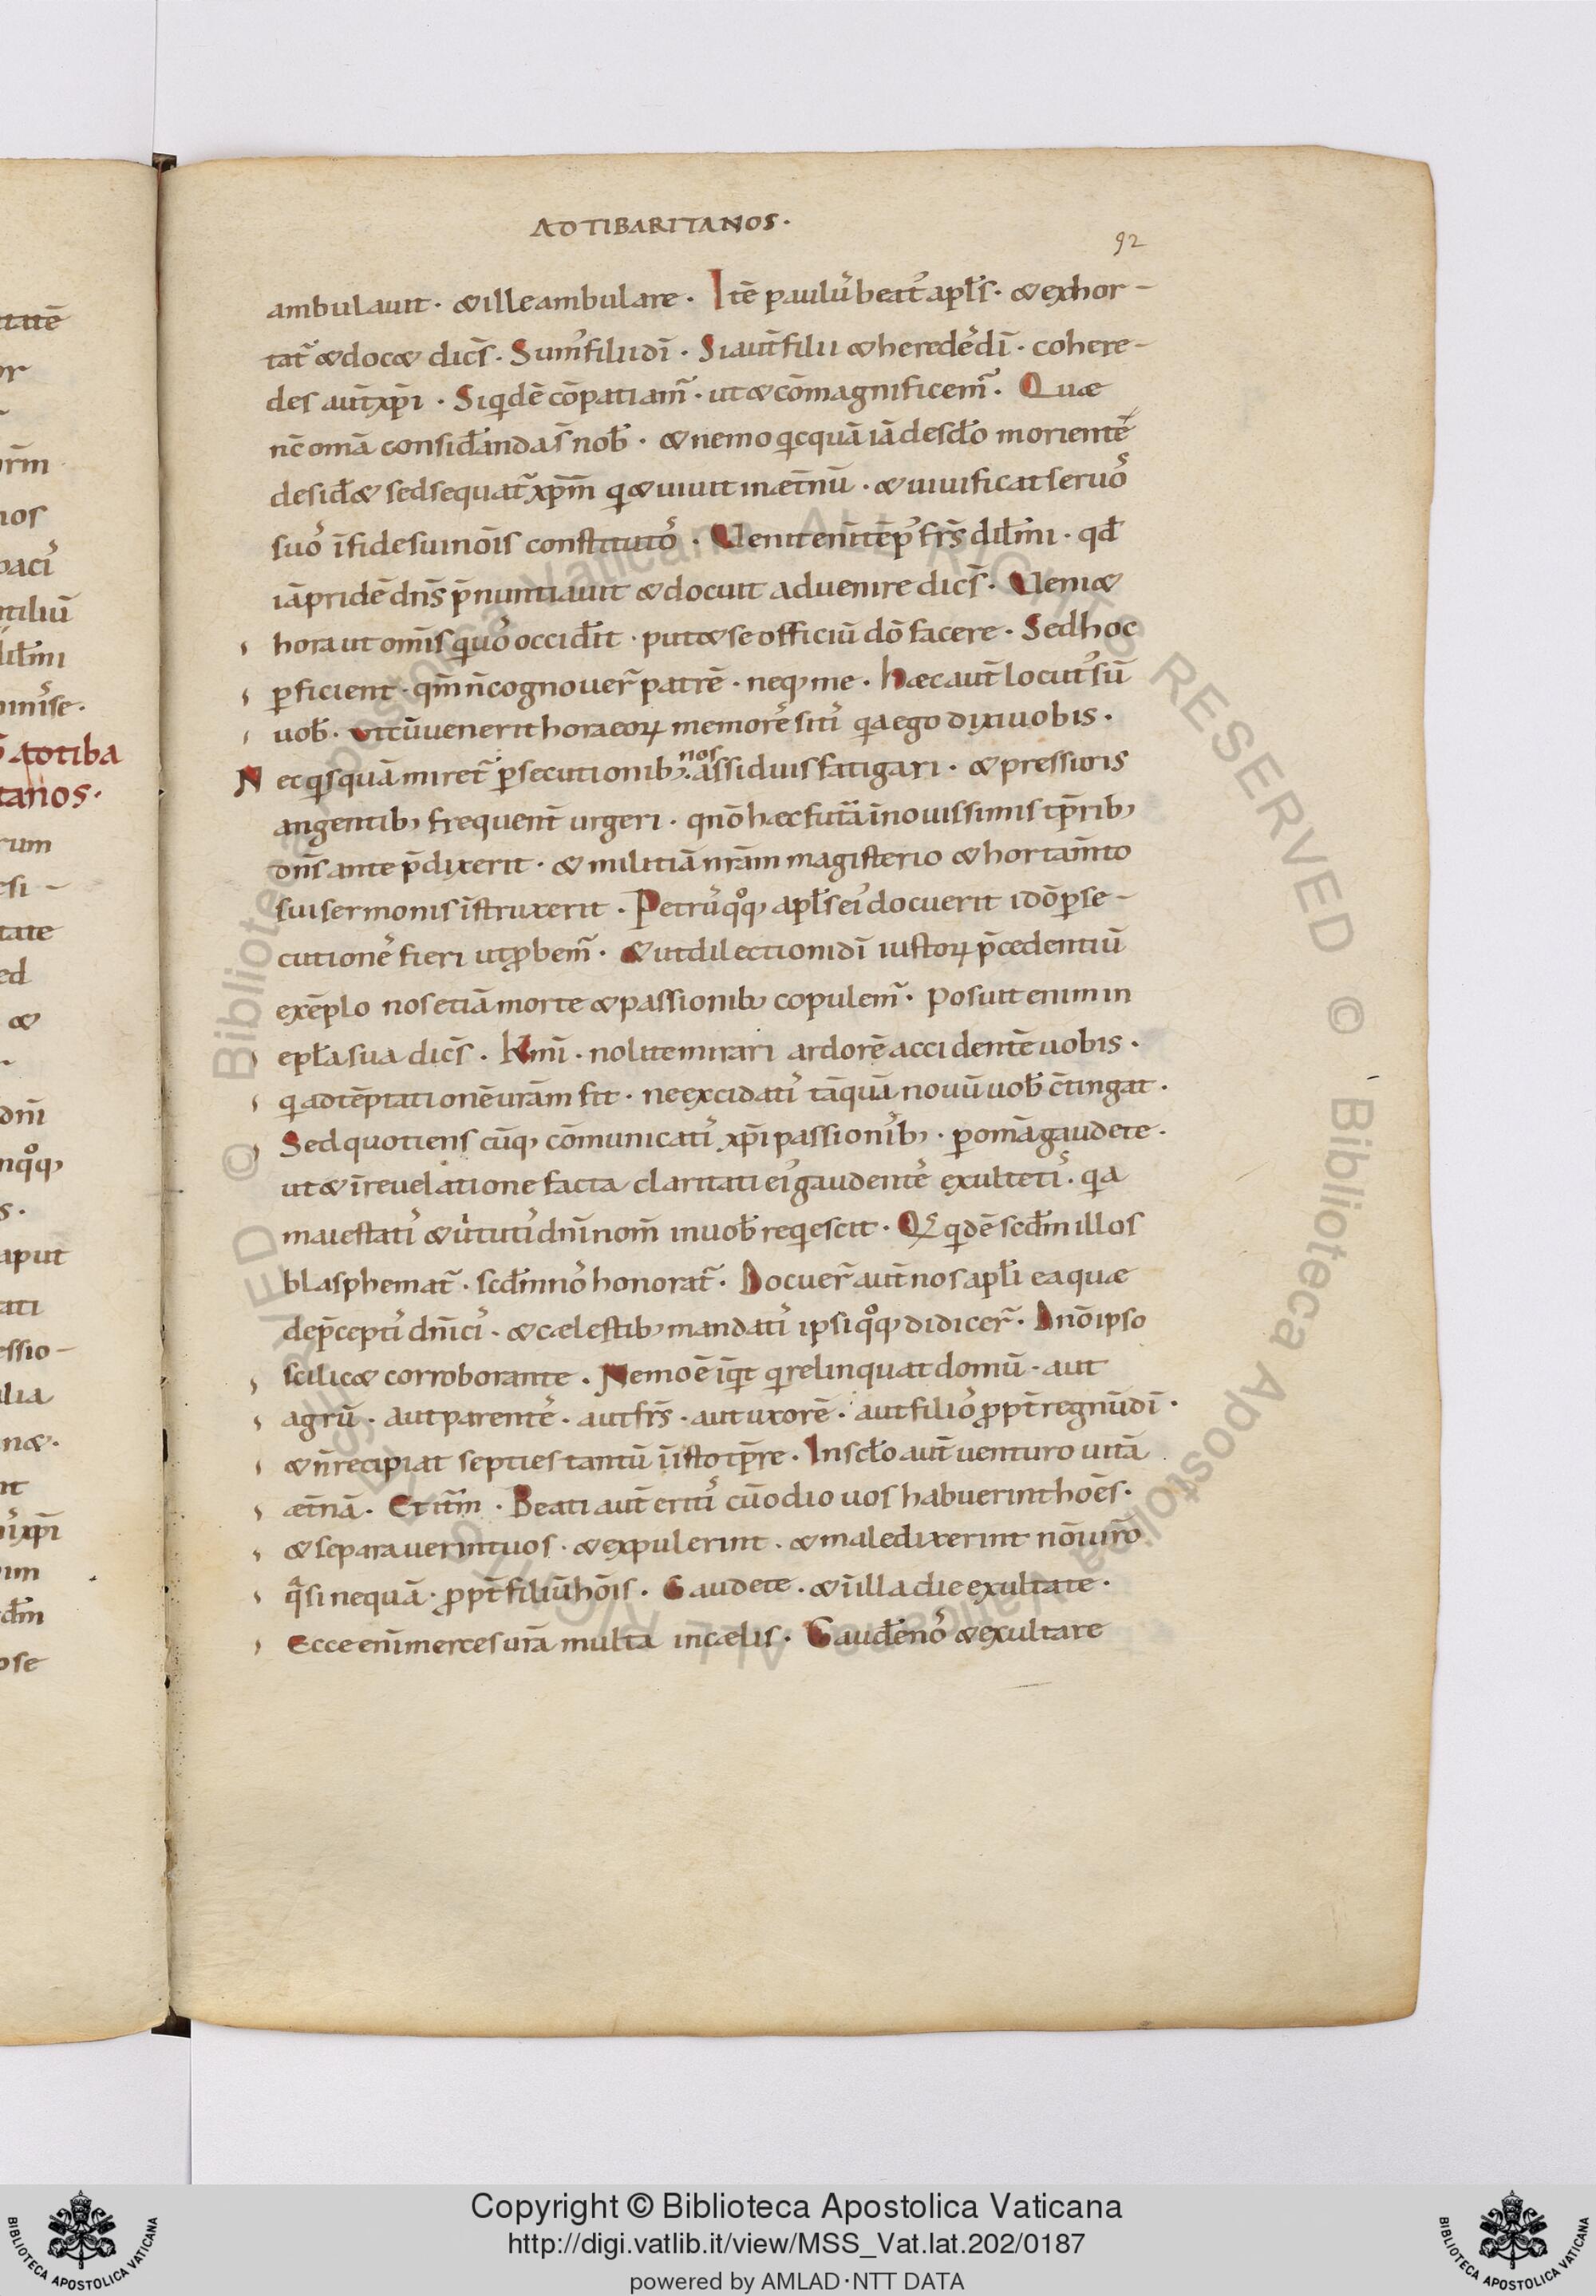 AD TIBARITANOS·
92
ambulauit· & ille ambulare· Itē paulu᷒ beat᷒ apl̄s· & exhor-
tat᷑ & doc& dic̄s· Sum᷒ filii dī· Si aut̄ filii & herede᷒ dī· cohere-
des aut̄ xp̄i· Siqdē cōpatiam᷑· ut & cōmagnificem᷑· Quæ
nc̄ om̄a consid̄anda s̄ nob̄· & nemo qcquā iā de scło morientē
desid̄& sed sequat᷑ xp̄m̄ q & uiuit in æt̄nū· & uiuificat seruo᷒
suo᷒ ī fide sui nōis constituto᷒· Uenit enī tēp᷒ frs̄ dił̄mi· qd̄
iā pridē dns̄ p̄nuntiauit & docuit aduenire dic̄s· Ueni&
hora ut omīs q uo᷒ occid̄it· put& se officiū dō facere· Sed hoc
ꝑficient· qm̄ n̄ cognouer᷑ patrē· neq; me· Hæc aut̄ locut᷒ sū
uob̄· ut cū uenerit hora eoꝝ memore᷒ siti᷒ qa ego dixi uobis·
Nec qsquā miret᷑ ꝑsecutionib; nos assiduis fatigari· & pressuris
angentib; frequent̄ urgeri· qnō hæc futā ī nouissimis tp̄rib;
dns̄ ante p̄dixerit· & militiā nrām magisterio & hortam̄to
sui sermonis īstruxerit· Petru᷒ qq; apl̄s ei᷒ docuerit idō ꝑse-
cutione᷒ fieri ut ꝓbem᷑· & ut dilectioni dī iustoꝝ p̄cedentiū
exēplo nos etiā morte & passionib; copulem᷑· posuit enim in
epła sua dic̄s· Kmī· nolite mirari ardorē accidentē uobis·
q ad tēptationē urām fit· ne excidati᷒ tāquā nouū uob̄ c̄tingat·
Sed quotiens cūq; cōmunicati᷒ xp̄i passionib;· ꝑ om̄a gaudete·
ut & ī reuelatione facta claritati ei᷒ gaudente᷒ exulteti᷒· qa
maiestati᷒ & uirtuti᷒ dnī nom̄ in uob̄ reqescit· Q᷒ qdē scd̄m illos
blasphemat᷑· scd̄m no᷒ honorat᷑· Docuer᷑ aut̄ nos apłi ea quæ
de p̄cepti᷒ dnīci᷒· & cælestib; mandati᷒ ipsi qq; didicer᷑· Dnō ipso
scilic& corroborante· Nemo ē īqt q relinquat domū· aut
agrū· aut parente᷒· aut frs̄· aut uxorē· aut filio᷒ ꝓpt̄ regnū dī·
& n̄ recipiat septies tantū ī isto tp̄re· In scło aut̄ uenturo uitā
æt̄nā· Et itm̄· Beati aut̄ eriti᷒ cū odio uos habuerint hoēs·
& separauerint uos· & expulerint· & maledixerint nōi urō
qsi nequā· ꝓpt̄ filiū hōis· Gaudete· & ī illa die exultate·
Ecce enī merces urā multa in cælis· Gaud̄e no᷒ & exultare
Copyright © Biblioteca Apostolica Vaticana
http://digi.vatlib.it/view/MSS_Vat.lat.202/0187
powered by AMLAD·NTT DATA